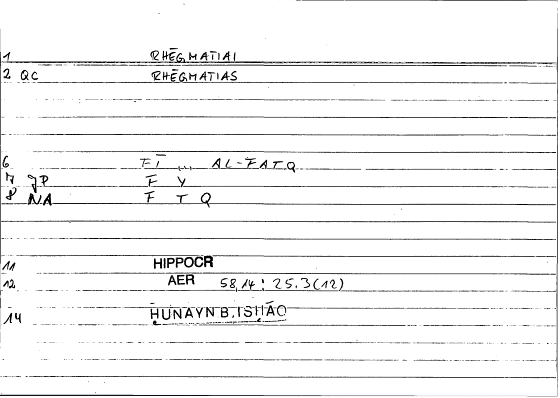 1 RHĒGMATIAI
2 QC RHĒGMATIAS
6 FĪ ... AL-FATQ
7 JP F Y
8 NA F T Q
11 HIPPOCR
12 AER 58,14 : 25.3(12)
14 ḤUNAYN B. ISḤĀQ